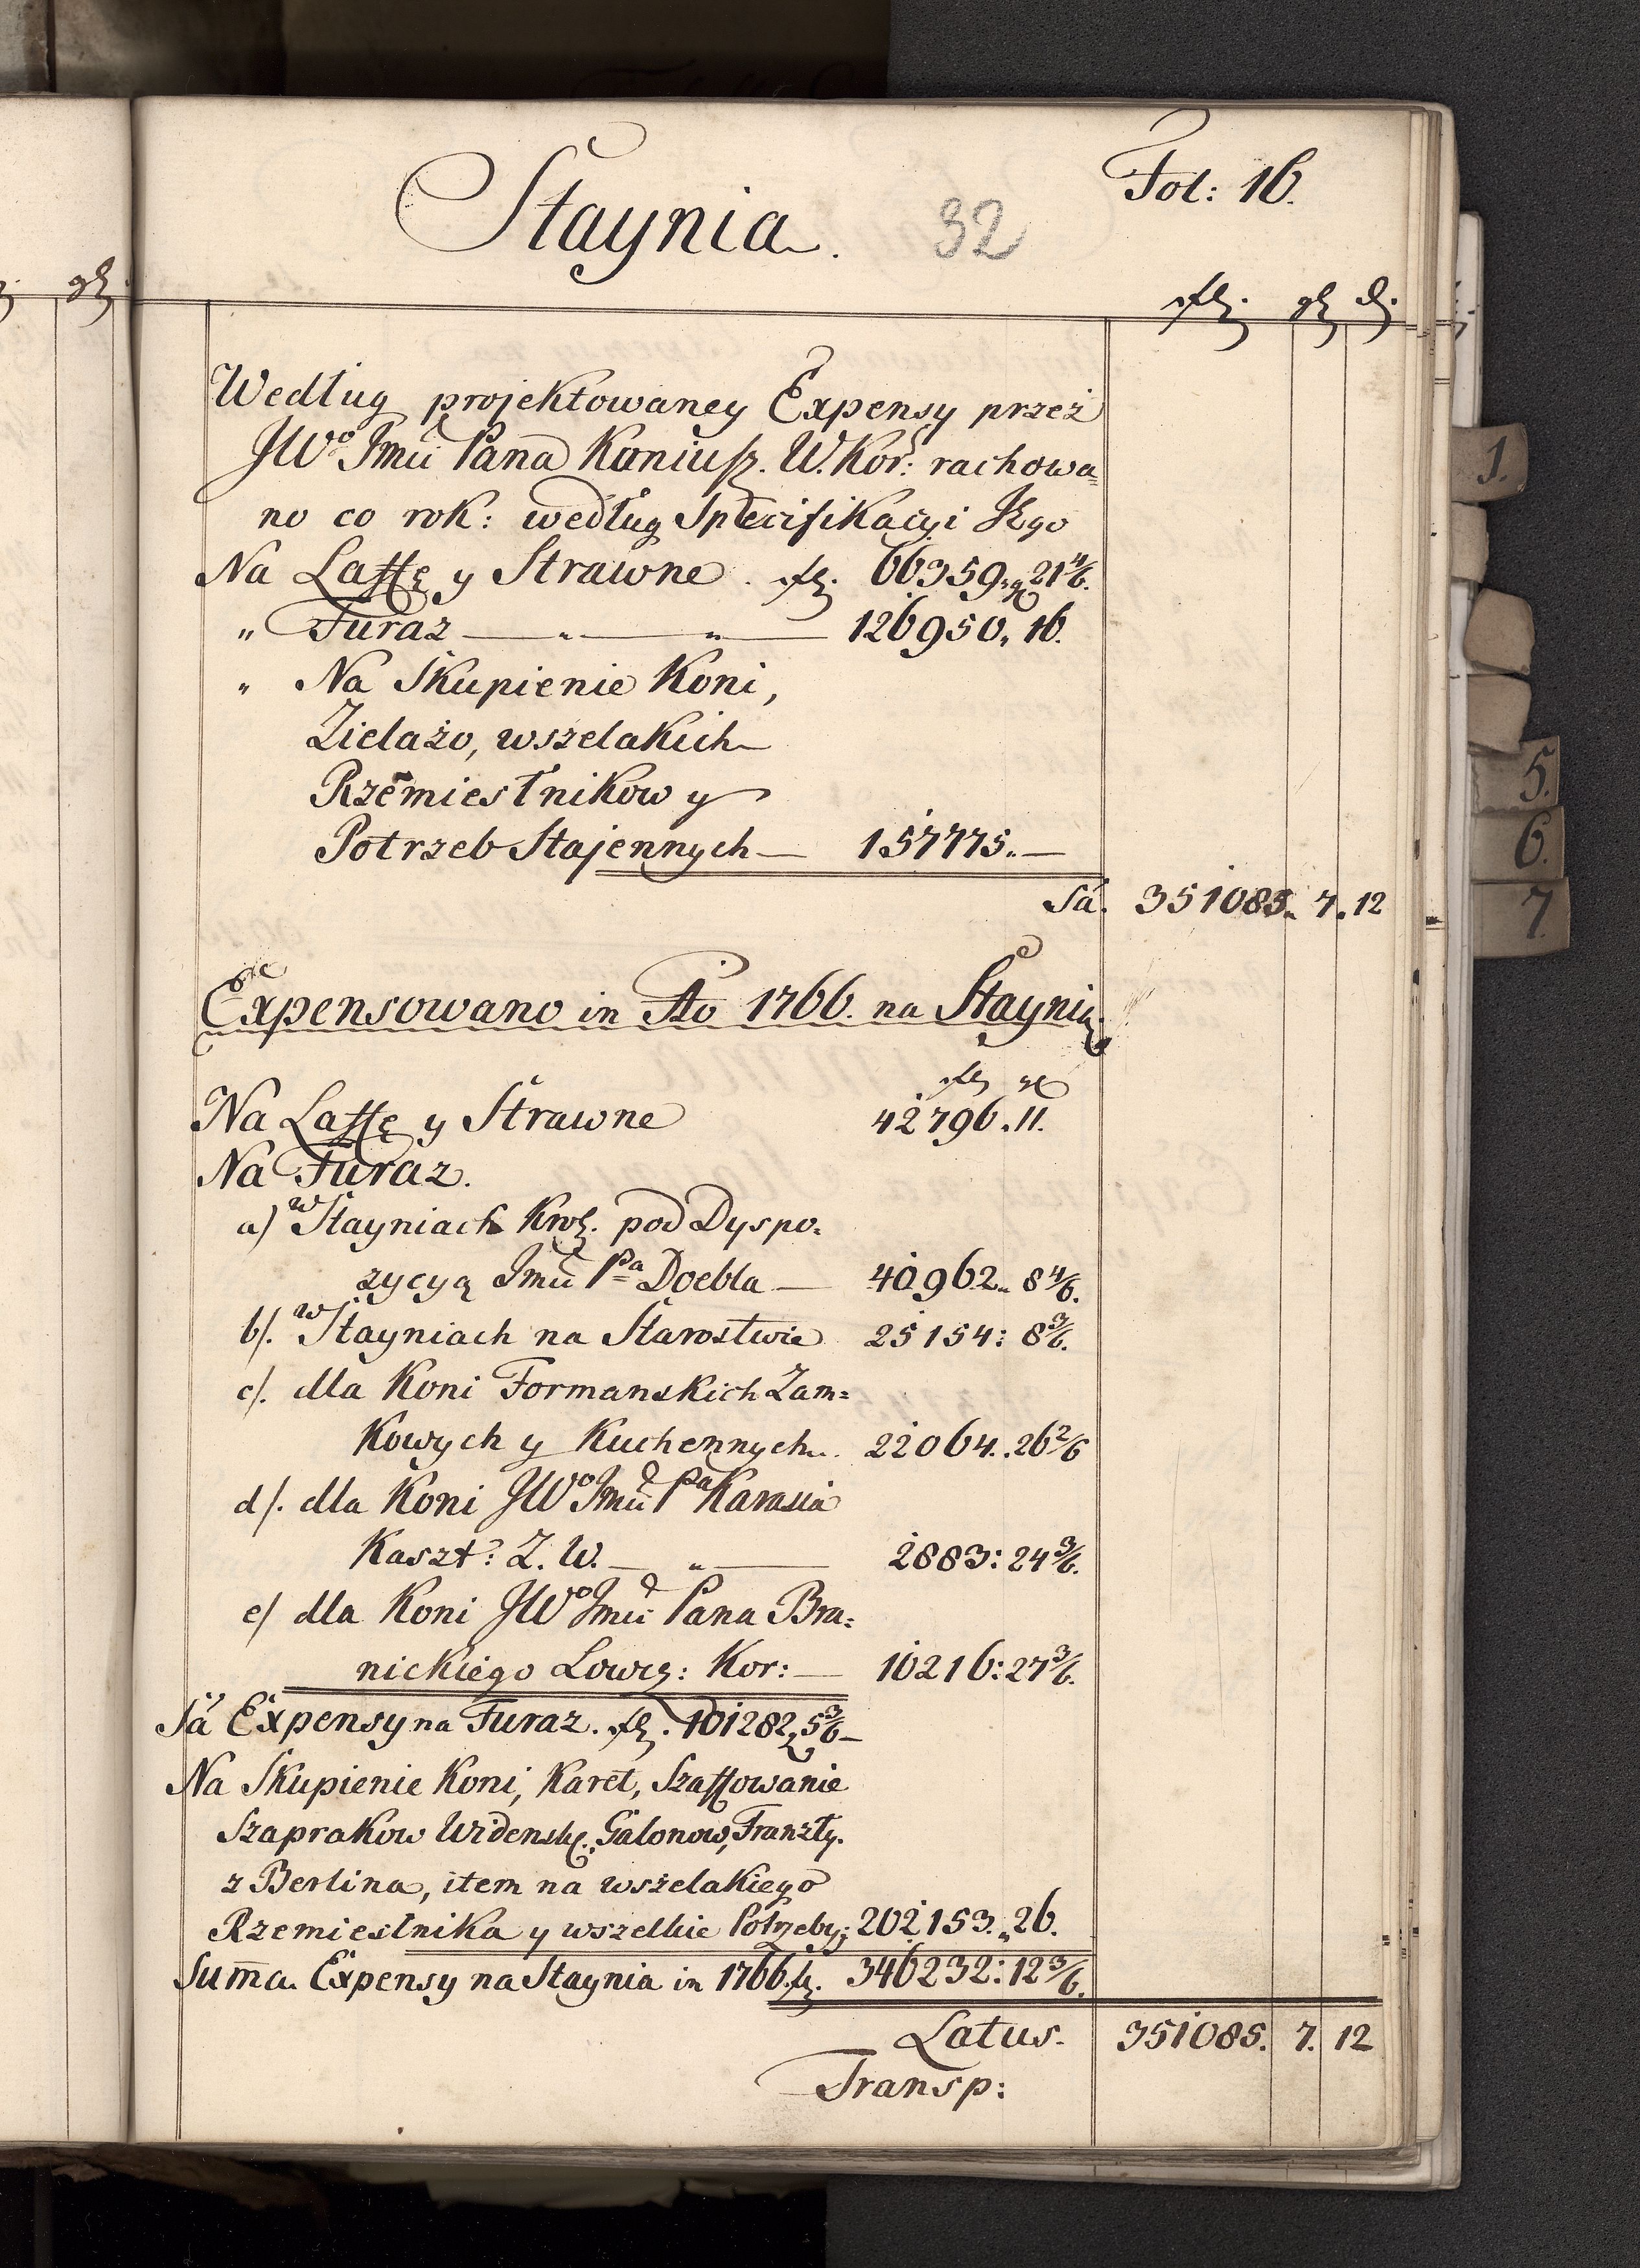 Fol: 16.
Staynia. 32
Według projektowaney Expensy przez
JWo Jmci Pana Koniusz. W. Kor: rachowa=
no co rok: według Specifikacyi Jego
Na Laffę y Strawne. fl. 66359. gr 21 4/6.
" Furaz — " — " — 126950. 16.
" Na Skupienie Koni,
Zielazo, wszelakich
Rzemiesłnikow y
Potrzeb Stajennych — 157775. —
Sa. 351085. 7. 12
Expensowano in Ao 1766. na Staynią.
fl gr
Na Laffę y Strawne 42796. 11.
Na Furaz.
a) w Stayniach Krol. pod Dyspo=
zycyą Jmci Pa Doebla — 40962. 8 4/6.
b). w Stayniach na Starostwie 25154: 8 3/6.
c). dla Koni Formanskich Zam=
Kowych y Kuchennych. 22064. 26 2/6
d). dla Koni JWo Jmci Pa Karasia
Kaszt: Z. W. — " — 2883: 24 3/6.
e) dla Koni JWo Jmci Pana Bra=
nickiego Lowcz: Kor: — 10216: 27 3/6.
Sa Expensy na Furaz. fl. 101282, 5 3/6 —
Na Skupienie Koni, Karet, Szaffowanie
Szaprakow Widensk. Galonow, Franzly.
z Berlina, item na wszelakiego
Rzemiesłnika y wszelkie Potrzeby; 202153. 26.
Suma Expensy na Staynia in 1766. fl. 346232: 12 3/6.
Latus. 351085. 7. 12
Transp:
1.
5.
6.
7.